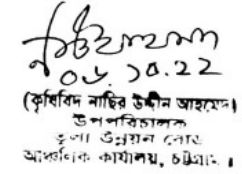 ০৬.১০.২২
(কৃষিবিদ নাছির উদ্দীন আহমেদ)
উপপরিচালক
তুলা উন্নয়ন বোর্ড
আঞ্চলিক কার্যালয়, চট্টগ্রাম।